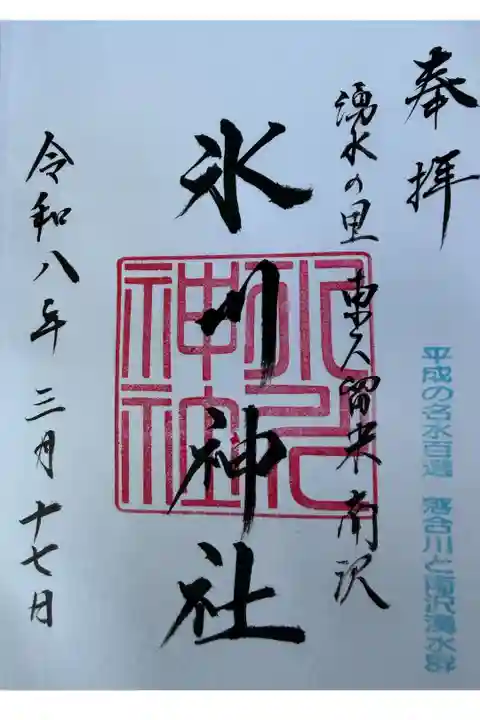 奉拝
平成の名水百選 落合川と南沢湧水群
湧水の里 東久留米南沢
氷川神社
氷川神社
令和八年三月十七日